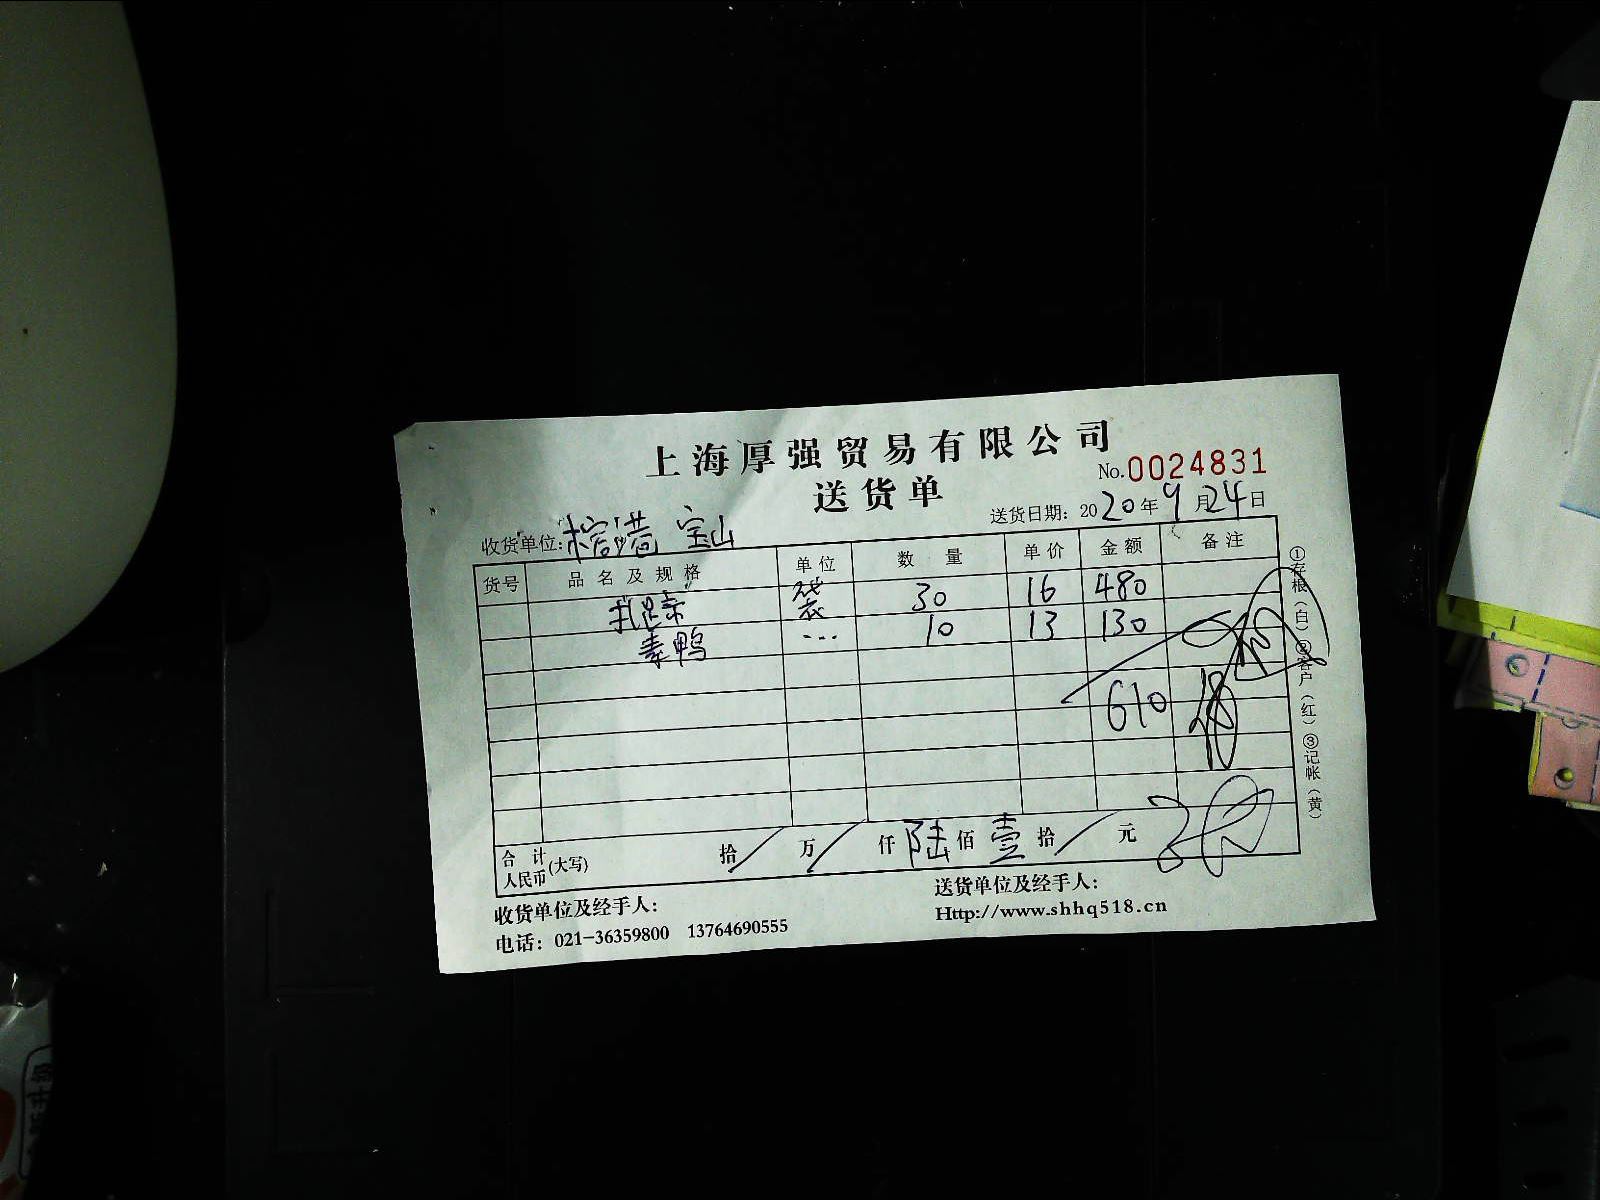 上海厚强贸易有限公司
送货单
No.0024831
收货单位: 宝山
送货日期: 2020年9月24日
货号 品名及规格 单位 数量 单价 金额 备注
扎蹄 袋 30 16 480
素鸭 ... 10 13 130
610
合计人民币(大写) 拾/万/仟陆佰壹拾/元
①存根(白)②客户(红)③记帐(黄)
收货单位及经手人:
送货单位及经手人:
电话: 021-36359800 13764690555
Http://www.shhq518.cn